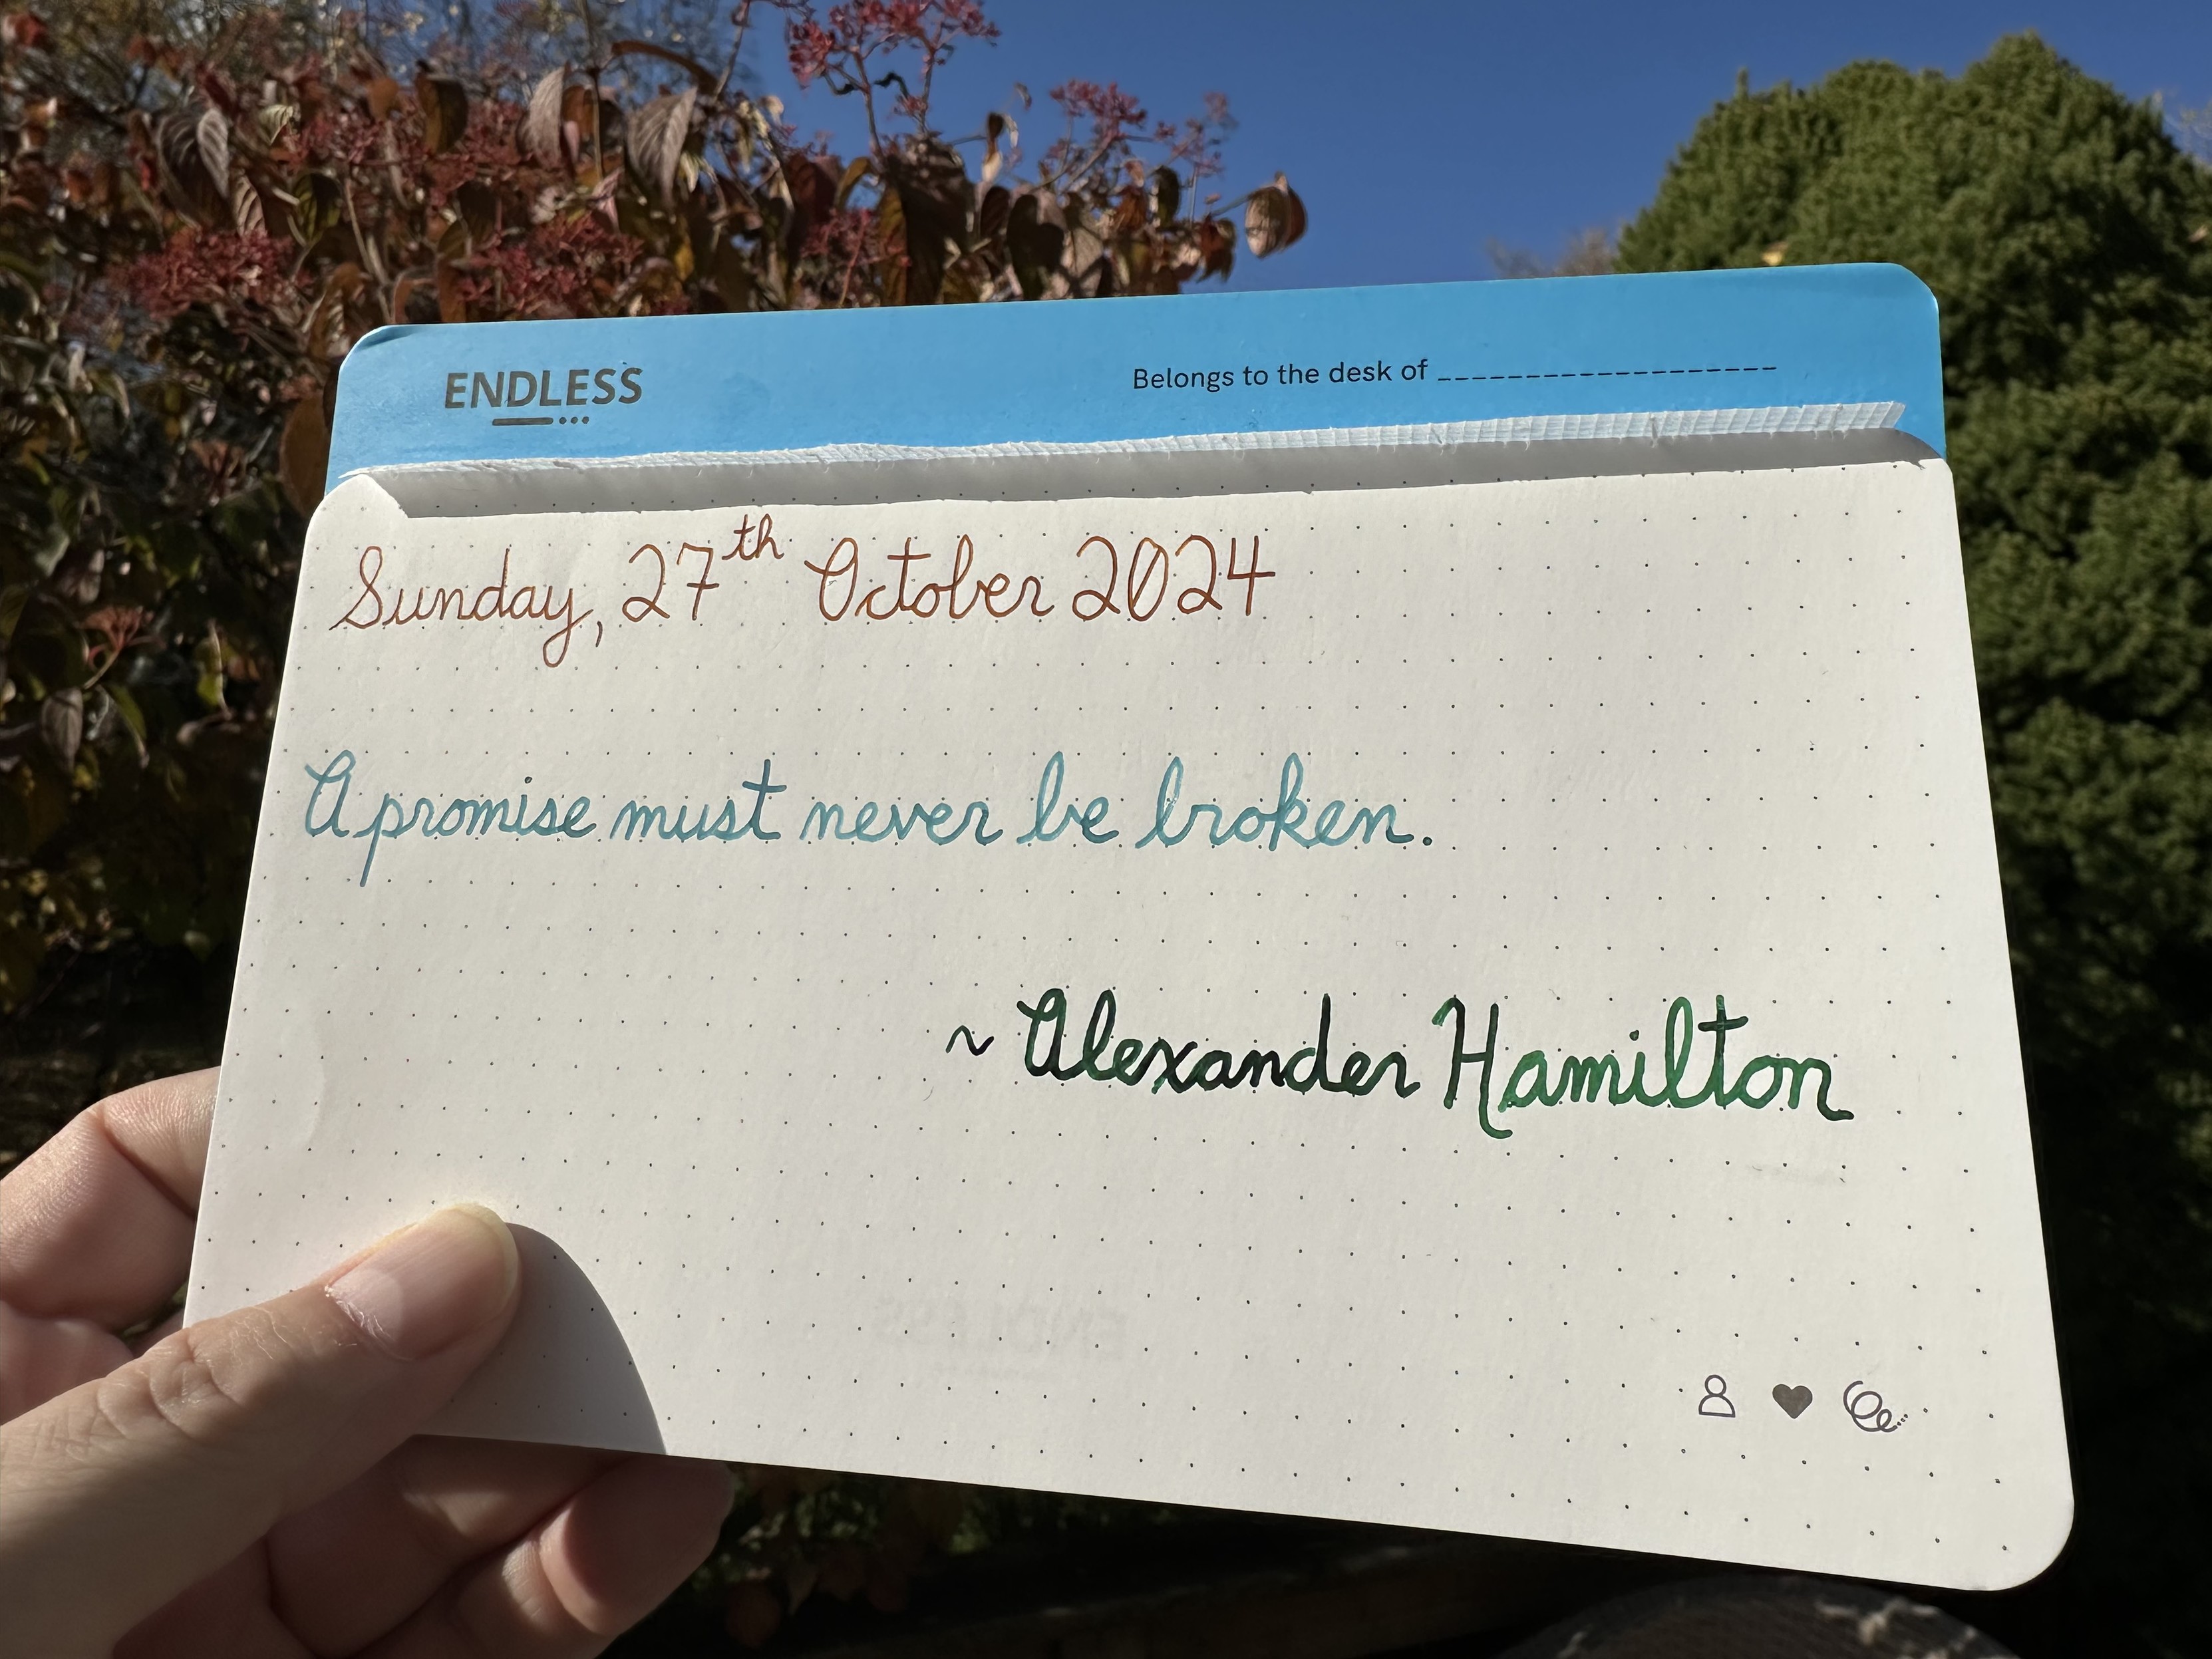 ENDLESS
Belongs to the desk of ___________________
Sunday, 27th October 2024
A promise must never be broken.
~ Alexander Hamilton
ENDLESS